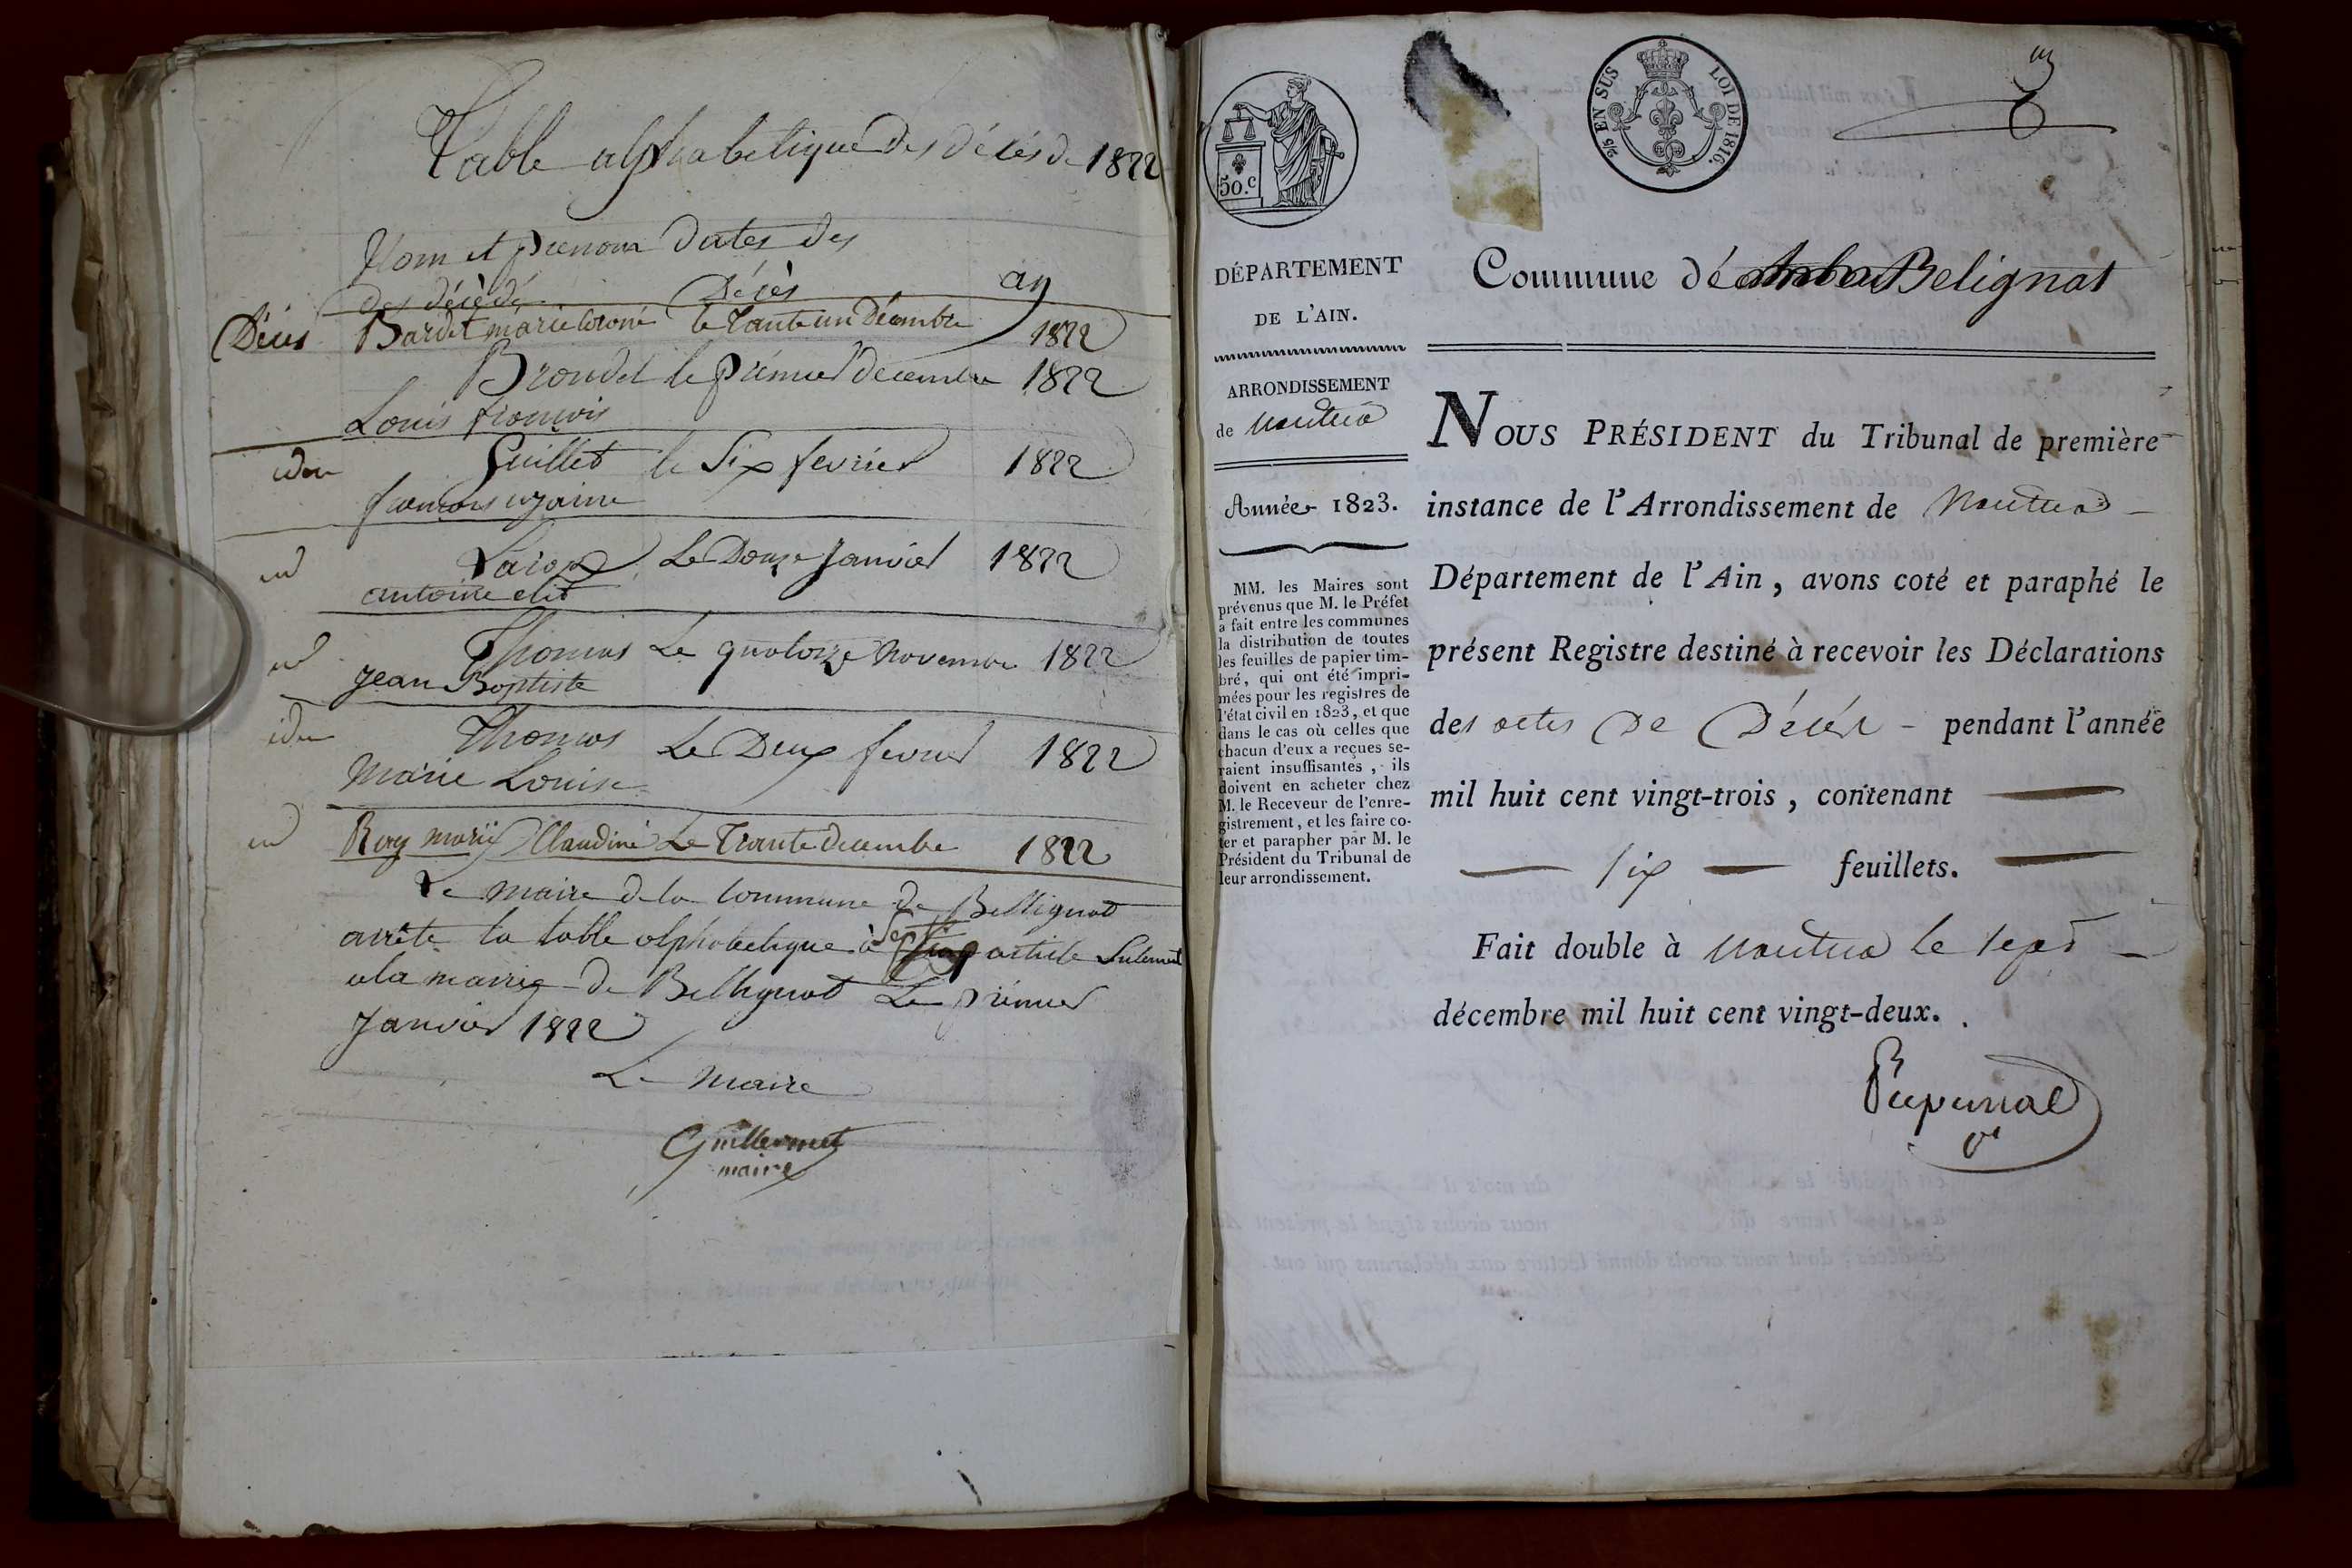 Table alphabetique des décés de 1822
Nom et prenom dates des
des décédé Décès an
Décès Bardet marie le Trante un Décembre 1822
Brondel le premier decembre 1822
Louis francois
idem Guillet le Six fevrier 1822
francois
id Le Douze Janvier 1822
antoine elie
id Thomas Le quatorze Novembre 1822
Jean Baptiste
idem Thomas Le Deux fevrier 1822
Marie Louise
id Roy marie Claudine Le Trante decembre 1822
Le maire de la Commune de Bellignat
arrête la table alphabetique à Sept article Sulement
a la mairie de Bellignat Le premier
Janvier 1822
Le Maire
Guillermet
maire
50.c
25 EN SUS LOI DE 1816.
DÉPARTEMENT
DE L'AIN.
ARRONDISSEMENT
de Nantua
Année 1823.
MM. les Maires sont
prévenus que M. le Préfet
a fait entre les communes
la distribution de toutes
les feuilles de papier tim-
bré, qui ont été impri-
mées pour les registres de
l'état civil en 1823, et que
dans le cas où celles que
chacun d'eux a reçues se-
raient insuffisantes, ils
doivent en acheter chez
M. le Receveur de l'enre-
gistrement, et les faire co-
ter et parapher par M. le
Président du Tribunal de
leur arrondissement.
Commune de Belignat
NOUS PRÉSIDENT du Tribunal de première
instance de l'Arrondissement de Nantua
Département de l'Ain, avons coté et paraphé le
présent Registre destiné à recevoir les Déclarations
des actes De Décés - pendant l'année
mil huit cent vingt-trois, contenant
six feuillets.
Fait double à Nantua le sept
décembre mil huit cent vingt-deux.